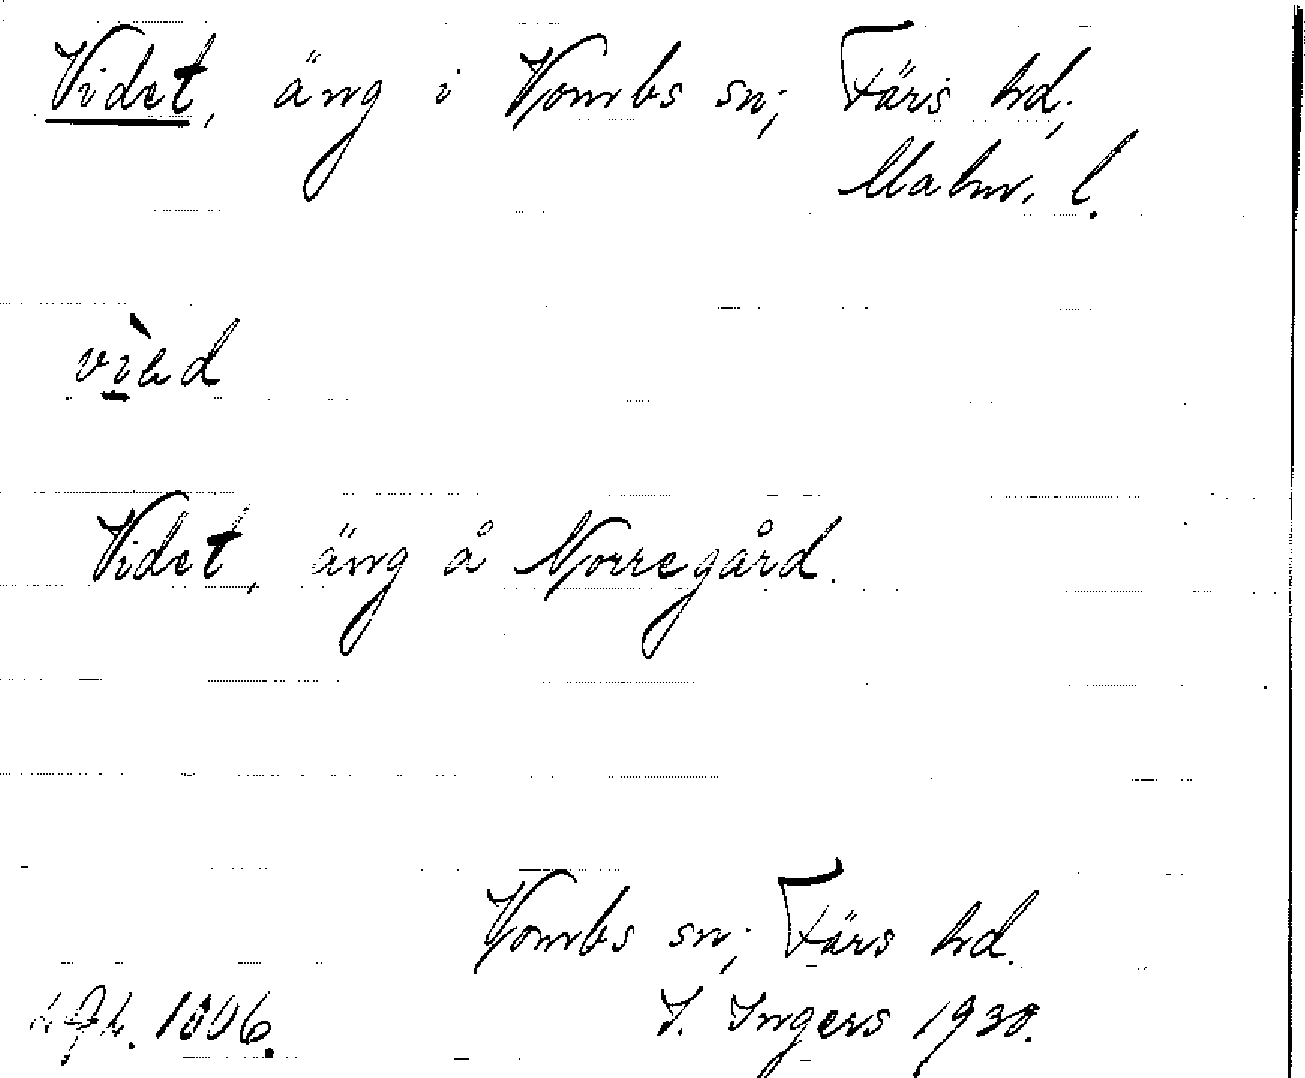 Videt, äng i Vombs sn; Färs hd;
Malm. l.
Videt, äng å Norregård.
Vombs sn; Färs hd.
1806. I. Ingers 1930.